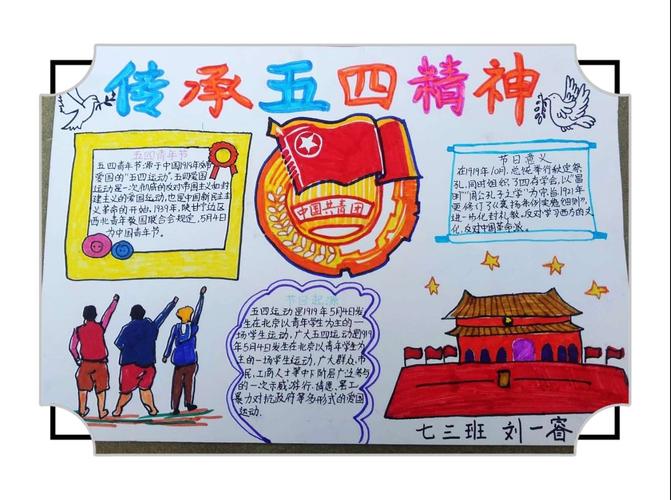 传承五四精神
五四青年节
五四青年节源于中国1919年反帝
爱国的"五四运动",五四爱国
运动是一次彻底的反对帝国主义和封
建主义的爱国运动,也是中国新民主主
义革命的开始,1939年,陕甘宁边区
西北青年救国联合会规定,5月4日
为中国青年节。
中国共青团
节日意义
在1919年10月,总统举行秋定祭
孔,同时组织了四存学会,以"昌
明"周公孔子之学"为宗旨1921年
节日起源
五四运动是1919年5月4日发
生在北京以青年学生为主的一
场学生运动,广大五四运动是1919
年5月4日发生在北京以青年学生为
主的一场学生运动,广大群众、市
民、工商人士等中下阶层广泛参与
的一次示威游行、请愿、罢工
暴力对抗政府等多形式的爱国
运动。
七三班 刘一睿